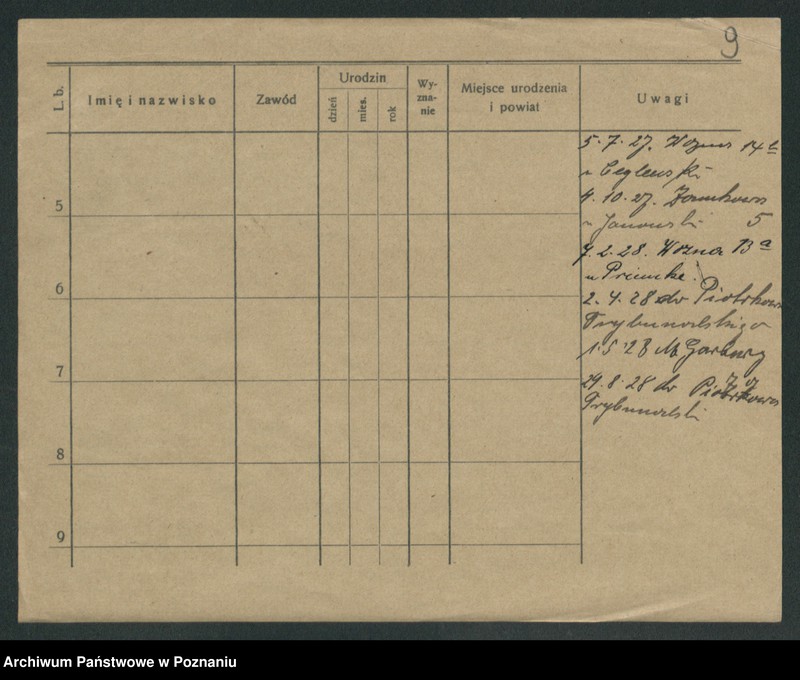 9
L. b.
Imię i nazwisko
Zawód
Urodzin
dzień
mies.
rok
Wy-
zna-
nie
Miejsce urodzenia
i powiat
Uwagi
5. 7. 27. 14
u
5
4. 10. 27.
u Janowski 5
7. 2. 28. Wozna 13a
u
6
2. 4. 28 do Piotrkowa
Trybunalskiego
1. 5. 28
7
29. 8. 28 do Piotrkowa
Trybunalski
8
9
Archiwum Państwowe w Poznaniu